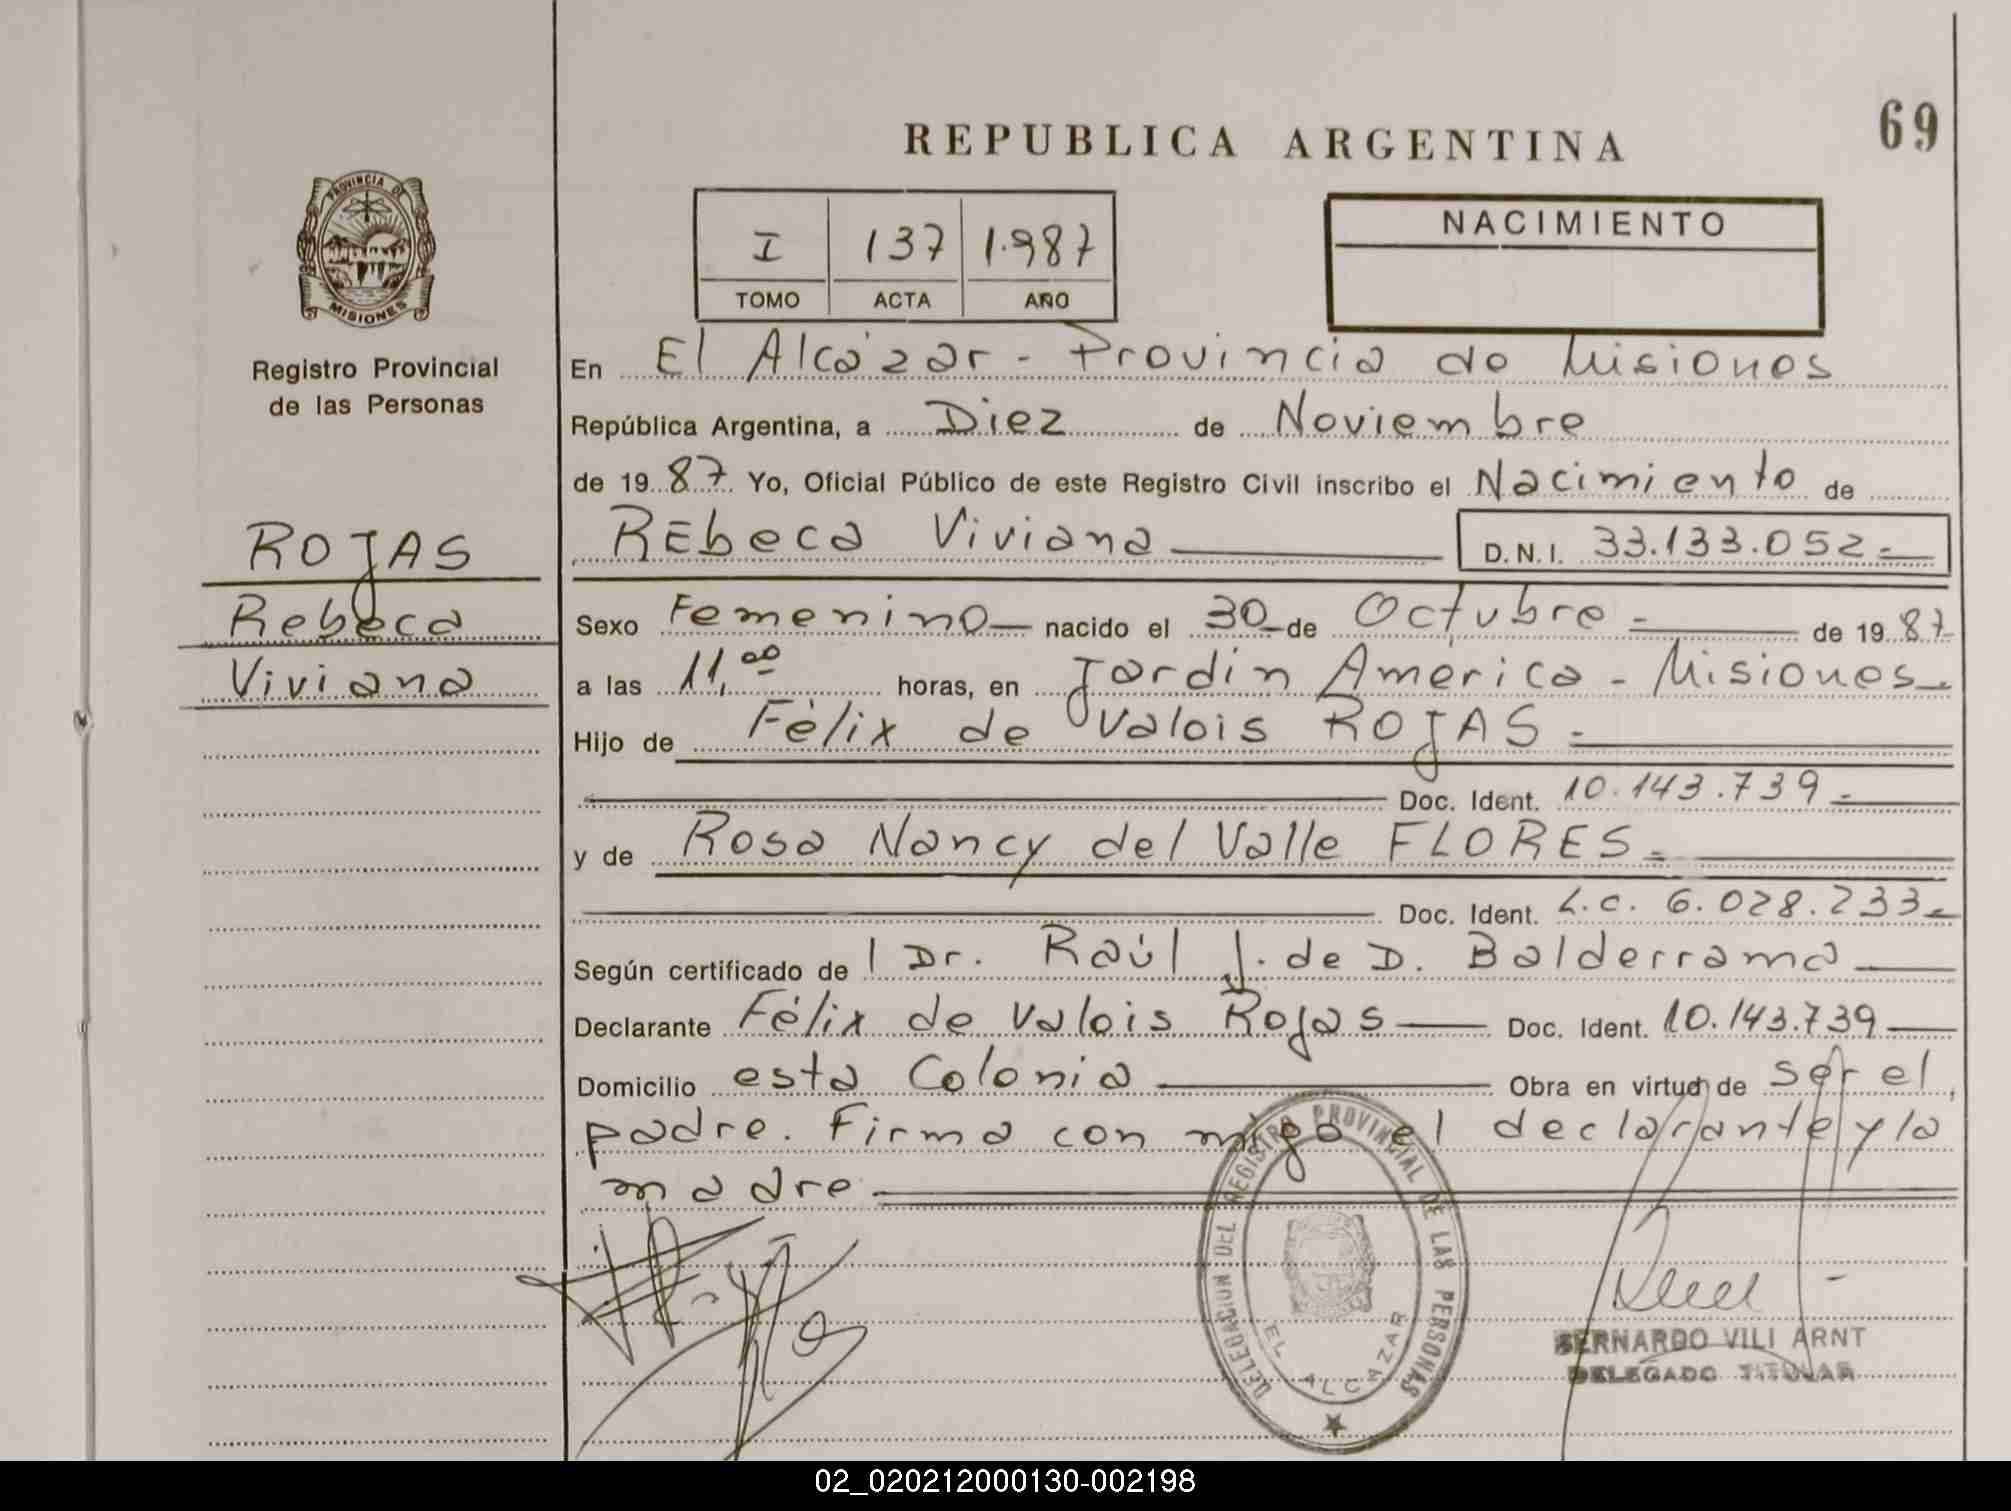 69
REPUBLICA ARGENTINA
PROVINCIA DE
MISIONES
Registro Provincial
de las Personas
I 137 1.987
TOMO ACTA AÑO
NACIMIENTO
En El Alcázar - Provincia de Misiones
República Argentina, a Diez de Noviembre
de 19 87 Yo, Oficial Público de este Registro Civil inscribo el Nacimiento de
ROJAS
Rebeca
Viviana
REbeca Viviana D.N.I. 33.133.052.-
Sexo Femenino nacido el 30 de Octubre - de 19 87
a las 11,00 horas, en Jardín América - Misiones.
Hijo de Félix de Valois ROJAS.-
Doc. Ident. 10.143.739.-
y de Rosa Nancy del Valle FLORES.-
Doc. Ident. L.C. 6.028.233.-
Según certificado de l Dr. Raúl J. de D. Balderrama
Declarante Félix de Valois Rojas Doc. Ident. 10.143.739
Domicilio esta Colonia Obra en virtud de ser el
padre. Firma con migo el declarante y la
madre
DELEGACION DEL REGISTRO PROVINCIAL DE LAS PERSONAS
EL ALCAZAR
BERNARDO VILI ARNT
DELEGADO TITULAR
02_020212000130-002198